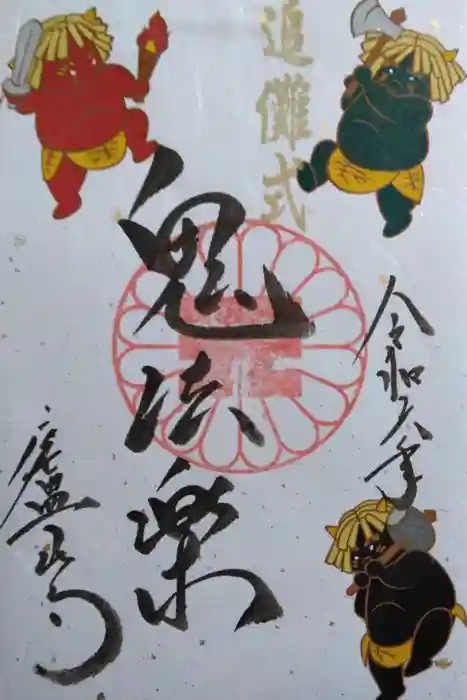 追儺式
令和六年
鬼法楽
廬山寺